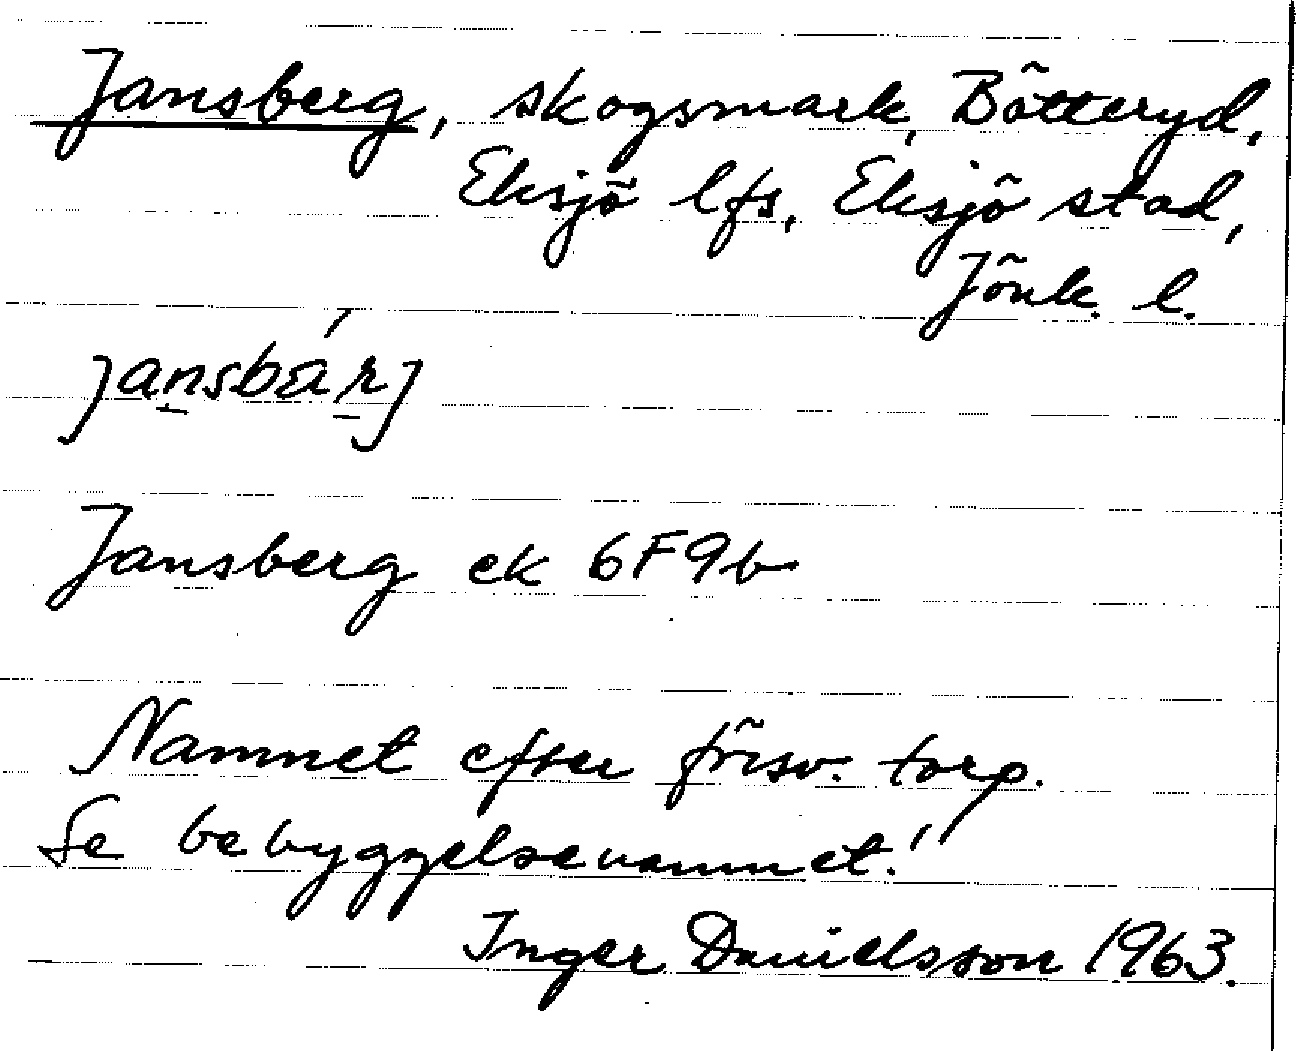 Jansberg, skogsmark, Bötteryd,
Eksjö lfs, Eksjö stad,
Jönk. l.
jansbárj
Jansberg ek 6F9b
Namnet efter försv. torp.
Se bebyggelsenamnet!
Inger Danielsson 1963.